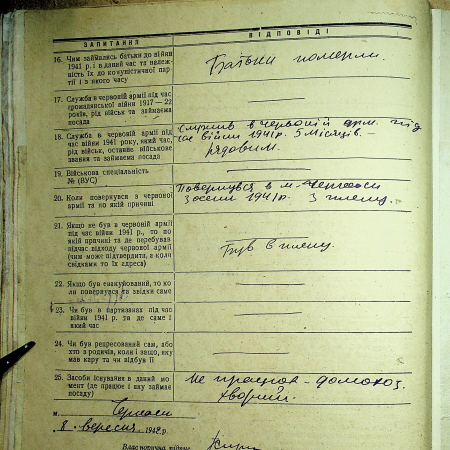 ЗАПИТАННЯ ВІДПОВІДІ
16. Чим займались батьки до війни
1941 р. і в даний час та належ-
ність їх до комуністичної пар-
тії і з якого часу
Батьки померли.
17. Служба в червоній армії під час
громадянської війни 1917—22
років, рід військ та займаєма
посада
18. Служба в червоній армії під
час війни 1941 року, який час,
рід військ, останнє військове
звання та займаєма посада
Служив в червоній арм. під
час війни 1941 р. 5 місяців. —
рядовим.
19. Військова спеціальність
№ (ВУС)
20. Коли повернувся з червоної
армії та по якій причині
Повернувся в м. Черкаси
з осени 1941 р. З плену.
21. Якщо не був в червоній армії
під час війни 1941 р., то по
якій причині та де перебував
підчас відходу червоної армії
(чим може підтвердити, а коли
свідками то їх адреса)
Був в плену.
22. Якщо був евакуйований, то ко-
ли повернувся та звідки саме
23. Чи був в партизанах під час
війни 1941 р. та де саме і
який час
24. Чи був репресований сам, або
хто з родичів, коли і защо, яку
мав кару та чи відбув її
25. Засоби існування в даний мо-
мент (де працює і яку займає
посаду)
Не працюв - домохоз.
хворий.
м. Черкаси
8. вересня 1942 р.
Власноручна підпис